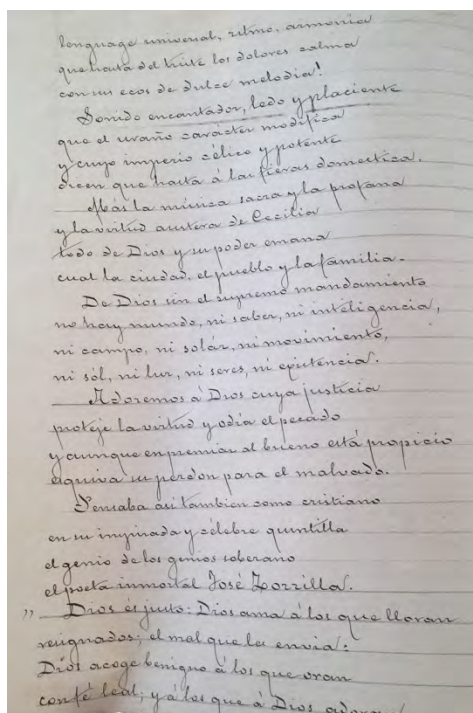 lenguage universal, ritmo, armonía
que hasta del triste los dolores calma
con sus ecos de dulce melodía!
Sonido encantador, ledo y placiente
que el uraño carácter modifica
y cuyo imperio célico y potente
dicen que hasta á las fieras domestica.
Más la música sacra y la profana
y la virtud austera de Cecilia
todo de Dios y su poder emana
cual la ciudad, el pueblo y la familia.
De Dios sin el supremo mandamiento
no hay mundo, ni saber, ni inteligencia,
ni campo, ni solár, ni movimiento,
ni sól, ni luz, ni seres, ni existencia.
Adoremos á Dios cuya justicia
proteje la virtud y odia el pecado
y aunque en premiar al bueno está propicio
esquiva su perdon para el malvado.
Pensaba asi tambien como cristiano
en su inspirada y célebre quintilla
el genio de los genios soberano
el poeta inmortal José Zorrilla.
" Dios és justo: Dios ama á los que lloran
resignados; el mal que les envia:
Dios acoge benigno á los que oran
con fé leal; y á los que á Dios adoran